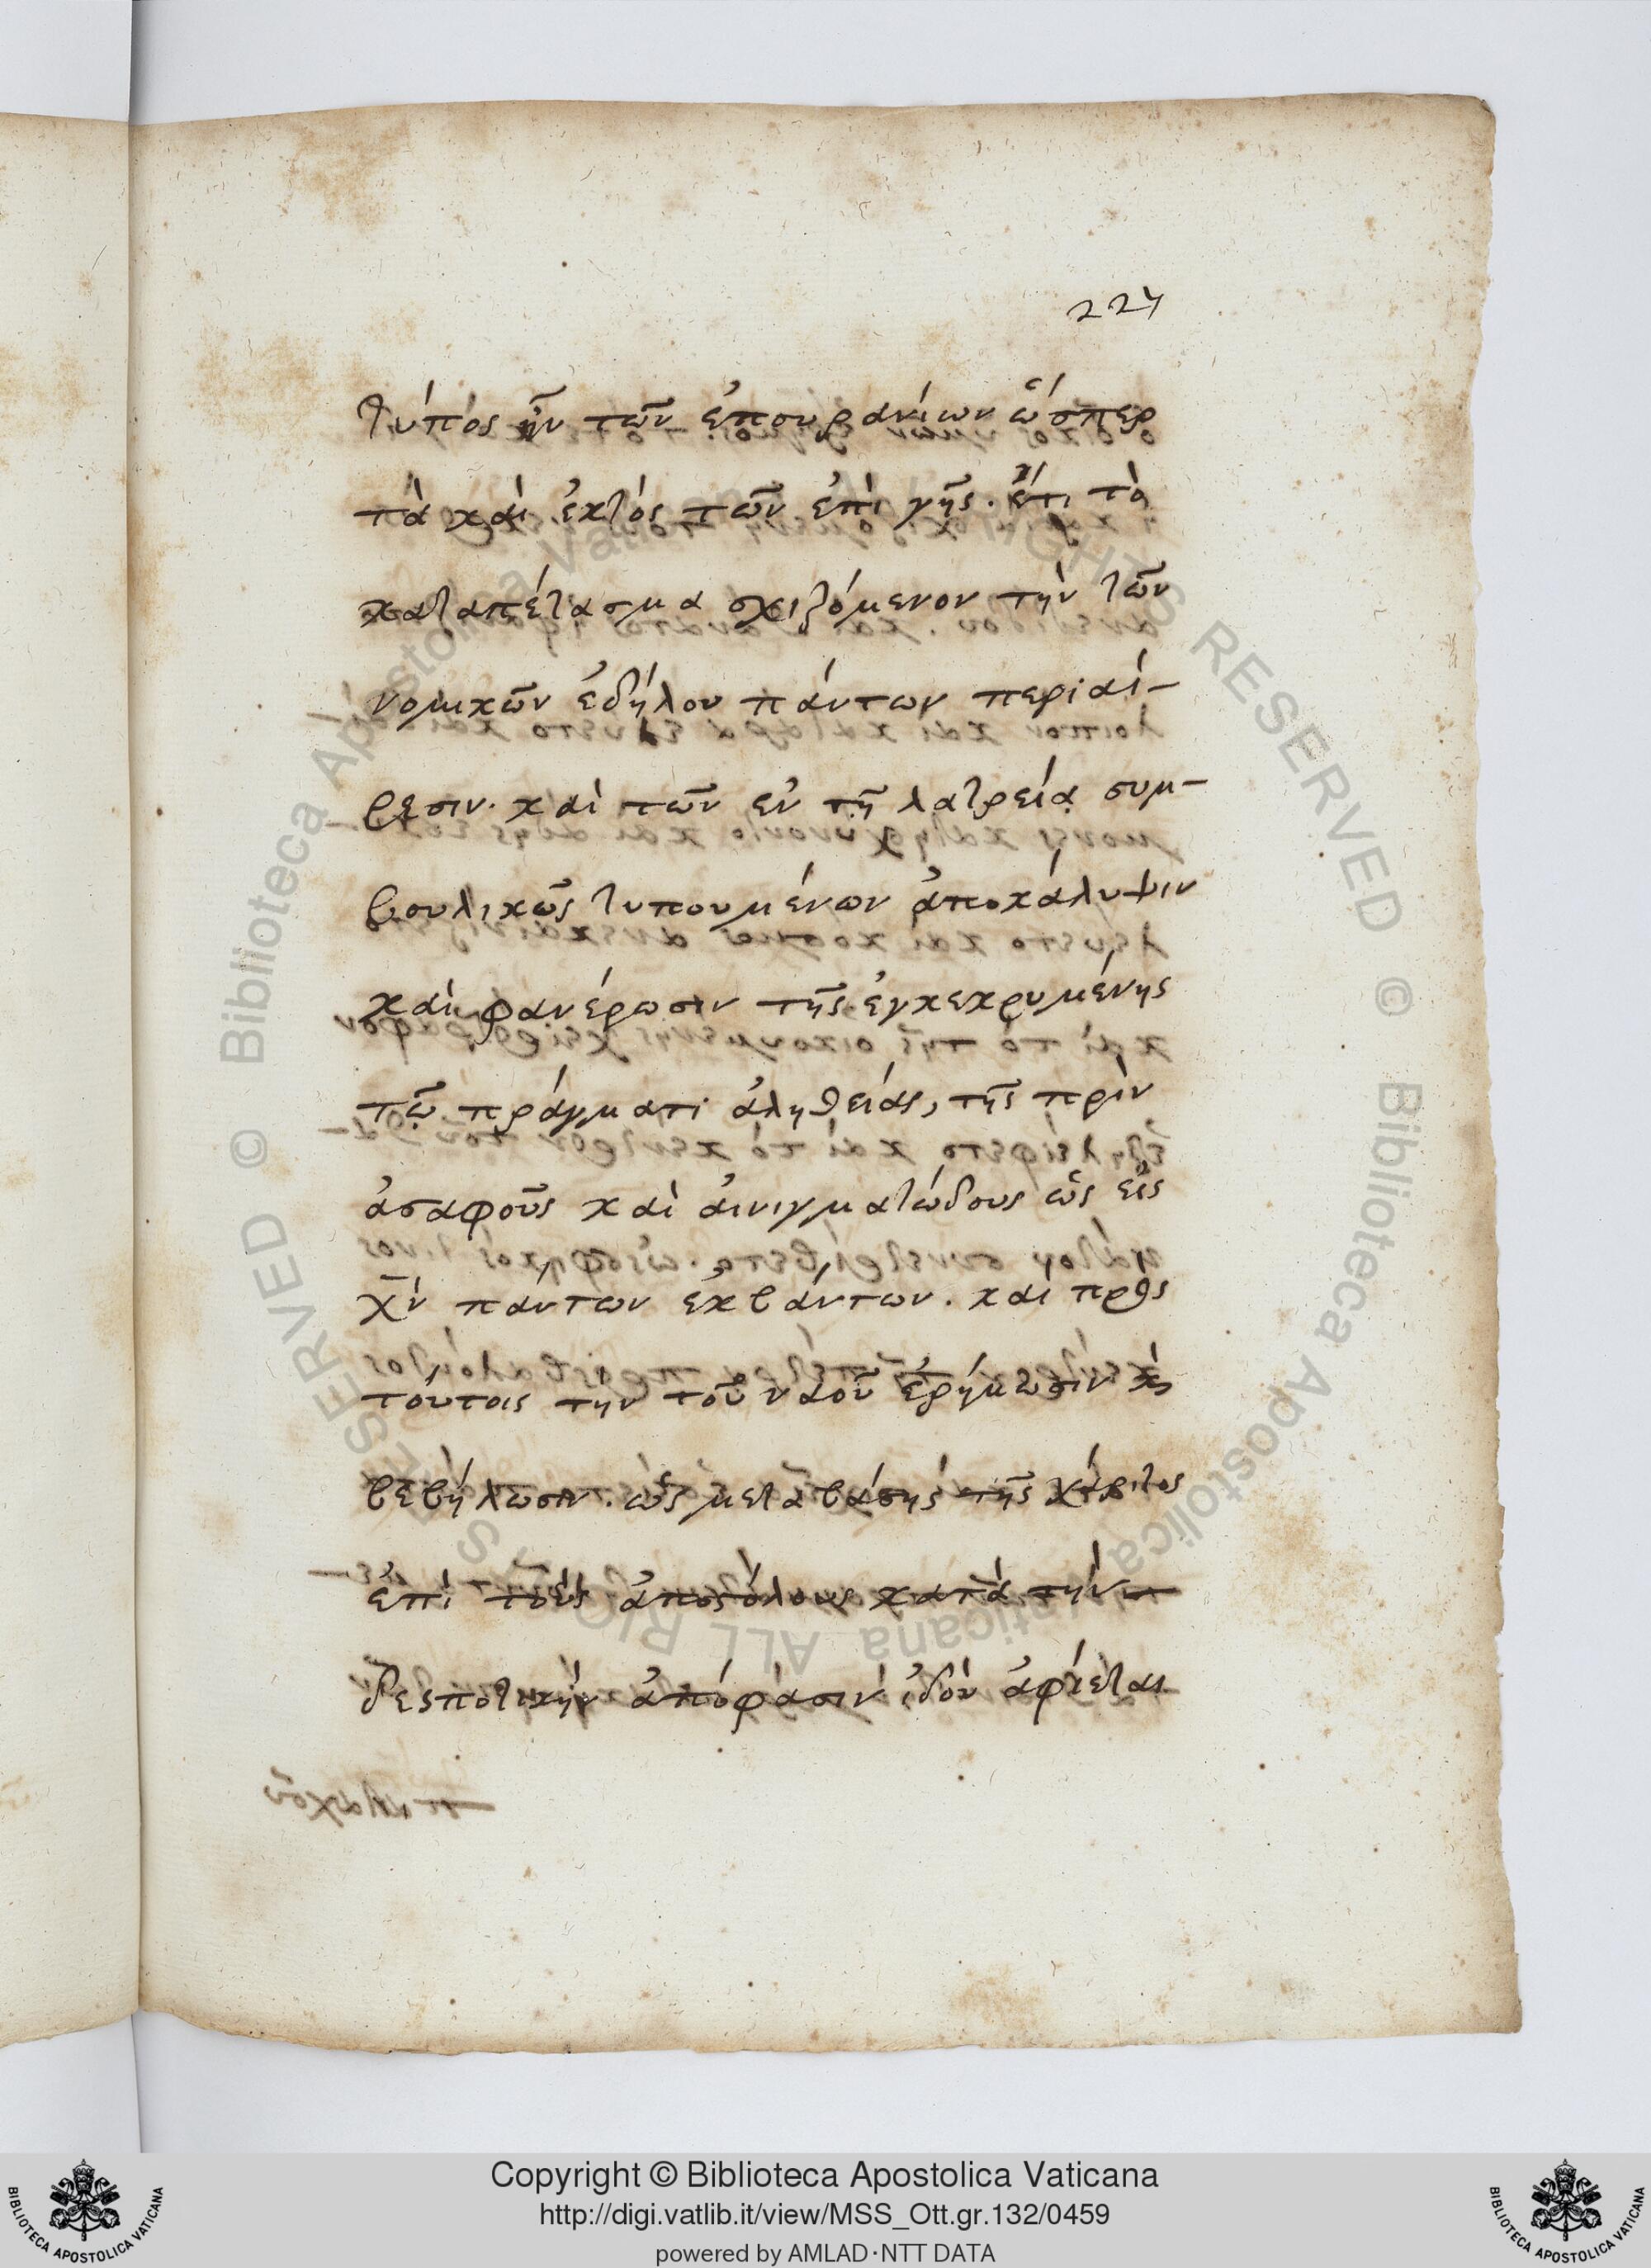 227
τύπος ἦν τῶν ἐπουρανίων ὥσπερ
τὰ καὶ ἐκτὸς τῶν ἐπὶ γῆς. ἔτι τὸ
καταπέτασμα σχιζόμενον τὴν τῶν
νομικῶν ἐδήλου πάντων περιαί-
ρεσιν. καὶ τῶν ἐν τῇ λατρείᾳ συμ-
βουλικῶς τυπουμένων ἀποκάλυψιν
καὶ φανέρωσιν τῆς ἐγκεκρυμένης
τῷ πράγματι ἀληθείας, τῆς πρὶν
ἀσαφοῦς καὶ αἰνιγματώδους ὡς εἰς
χν πάντων ἐκβάντων. καὶ πρὸς
τούτοις τὴν τοῦ ναοῦ ἐρήμωσιν κ
βεβήλωσιν. ὡς μεταβάσης τῆς χάριτος
ἐπὶ τοὺς ἀποστόλους κατὰ τὴν
δεσποτικὴν ἀπόφασιν ἰδοὺ ἀφίεται
Copyright © Biblioteca Apostolica Vaticana
http://digi.vatlib.it/view/MSS_Ott.gr.132/0459
powered by AMLAD·NTT DATA
BIBLIOTECA APOSTOLICA VATICANA
BIBLIOTECA APOSTOLICA VATICANA
© Biblioteca Apostolica Vaticana ALL RIGHTS RESERVED
© Biblioteca Apostolica Vaticana ALL RIGHTS RESERVED